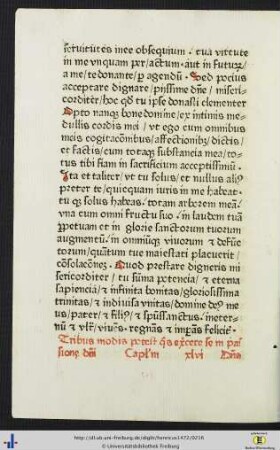 seruitutis mee obsequium . tua virtute
in me vnquam per/actum . aut in futurũ/
a me/te donante/ per agendũ . Sed pocius
acceptare dignare/ piissime dñe/ miseri-
corditer/ hoc qđ tu ipse donasti clementer
Opto nanqꝫ bone domine/ ex intimis me-
dullis cordis mei/ vt ego cum omnibus
meis cogitacõnibus/ affectionibꝫ/ dictis/
et factis/ cum totaqꝫ substancia mea/ to-
tus tibi fiam in sacrificium acceptissimũ .
Ita et taliter/ vt tu solus/ et nullus aliꝰ
preter te/ quicquam iuris in me habeat .
tu qꝫ solus habeas . totam arborem meã .
vna cum omni fructu suo . in laudem tuã
ꝑpetuam et in glorie sanctorum tuorum
augmentũ . in omniũqꝫ viuorum et defũc
torum/ quantum tue maiestati placuerit/
cõsolacõnem . Quod prestare digneris mi
sericorditer/ tu sũma potencia/ et eterna
sapiencia/ et infinita bonitas/ gloriosissima
trinitas/ et indiuisa vnitas/ domine deꝰ me
us/ pater/ et filiꝰ/ et spũssanctus . in eter-
nũ &amp; vltra/ viuẽs . regnãs &amp; imperãs feliciter .
Tribus modis potest qͥs exercere se in pas
sione dñi Caplm xlvi Dñs
http://dl.ub.uni-freiburg.de/diglit/henricus1472/0216
© Universitätsbibliothek Freiburg